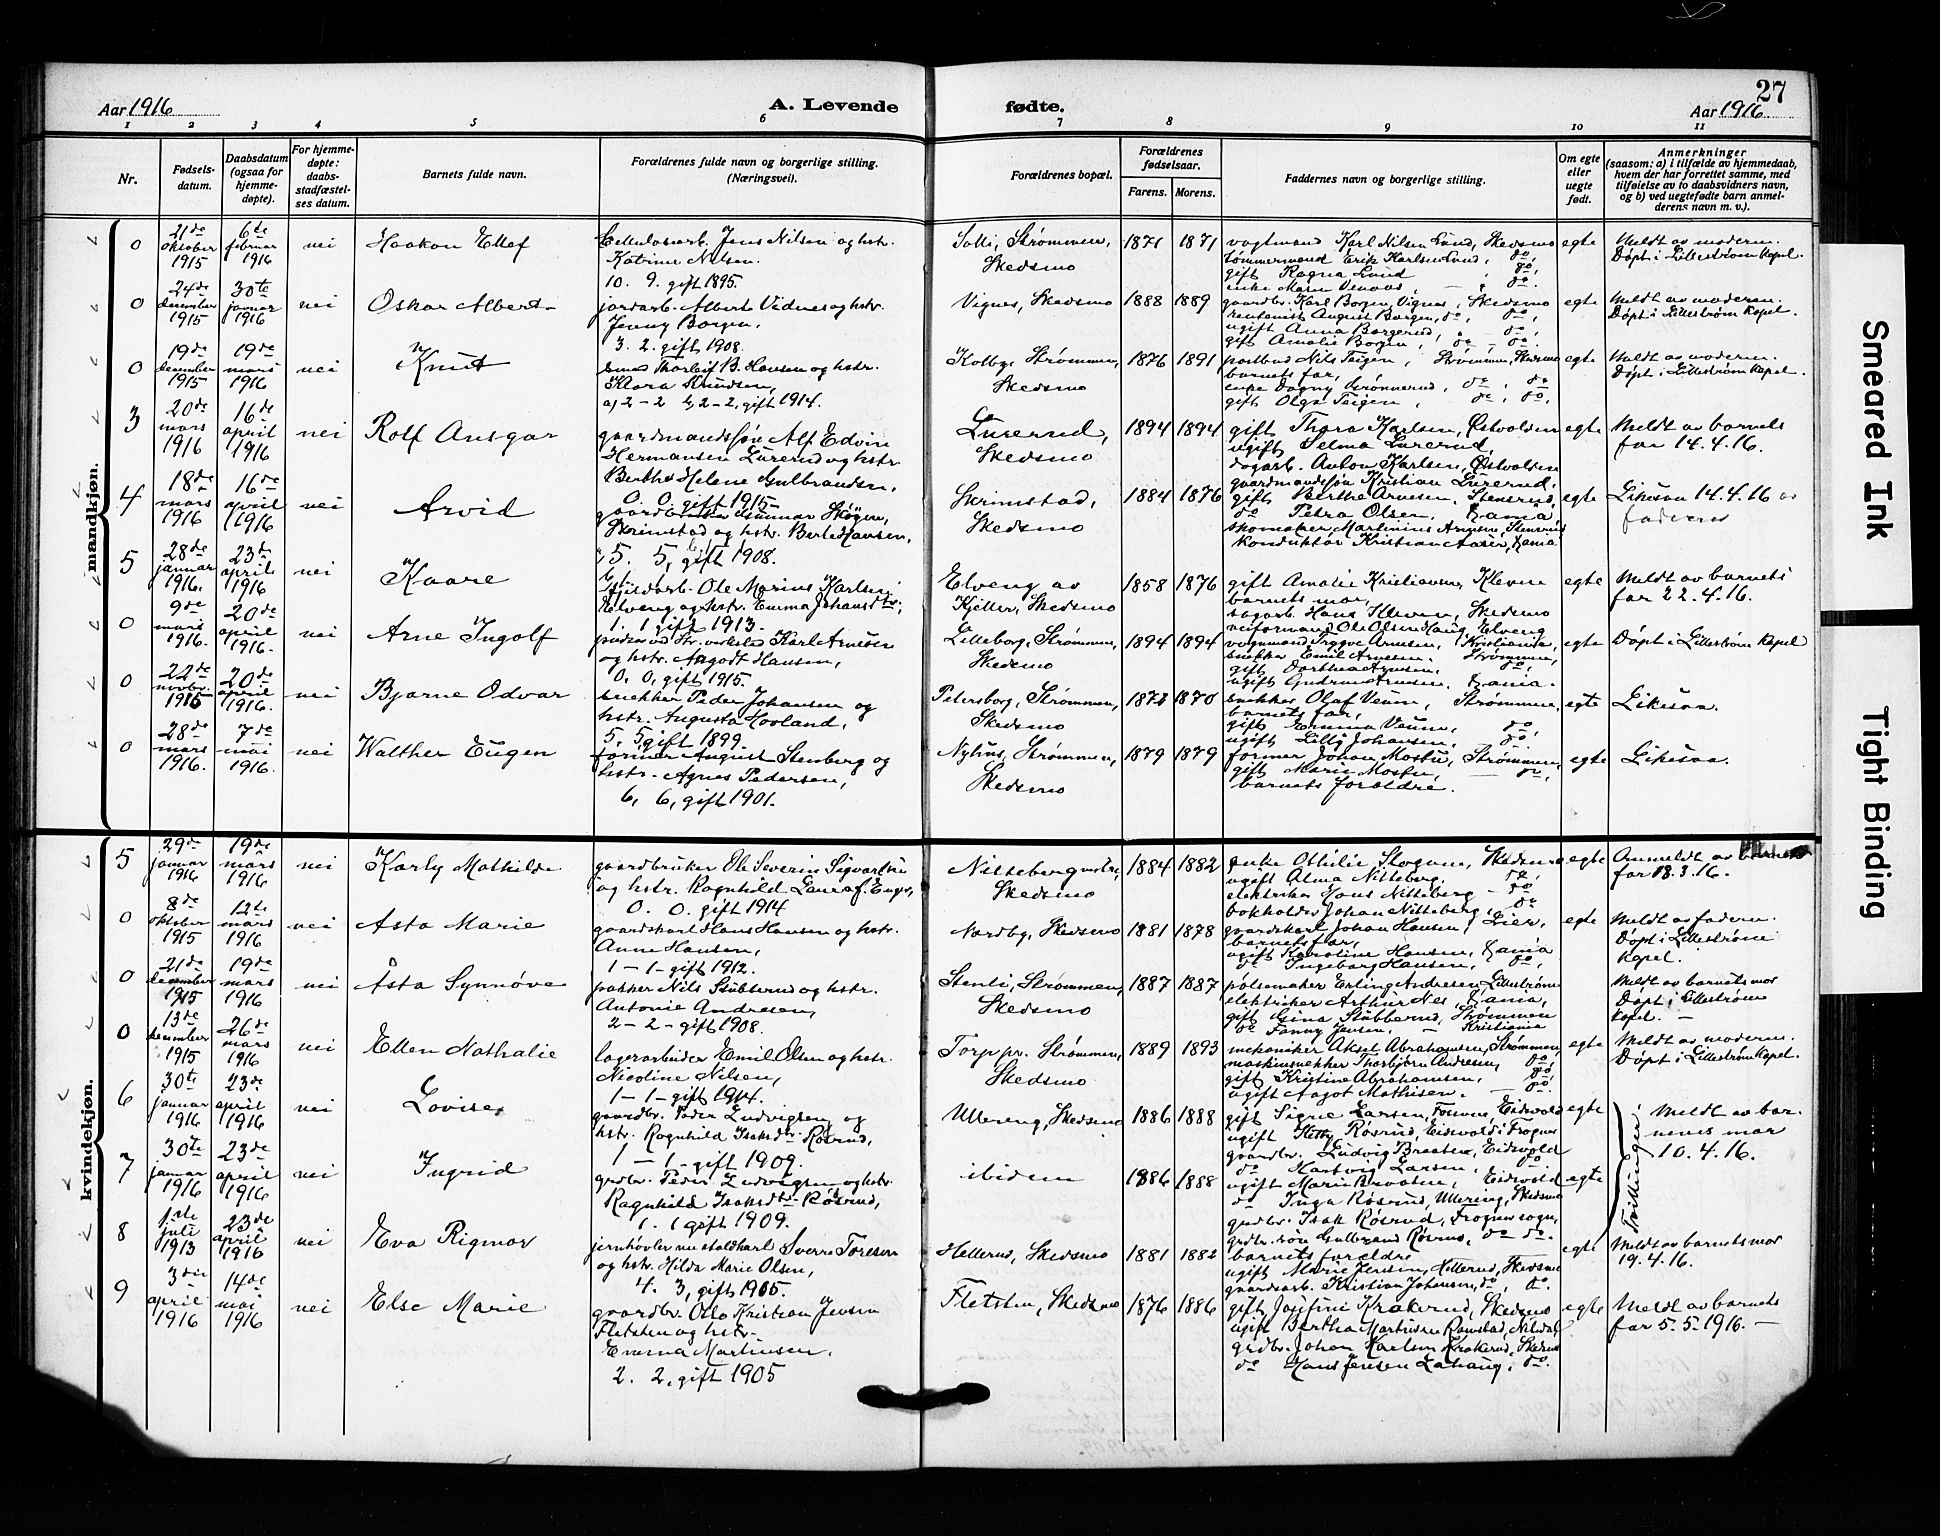 27
Aar 1916
A. Levende
fødte.
Aar 1916
1 2 3 4 5 6 7 8 9 10 11
Nr.
Fødsels-
datum.
Daabsdatum
(ogsaa for
hjemme-
døpte).
For hjemme-
døpte:
daabs-
stadfæstel-
ses datum.
Barnets fulde navn.
Forældrenes fulde navn og borgerlige stilling.
(Næringsvei).
Forældrenes bopæl.
Forældrenes
fødselsaar.
Farens. Morens.
Faddernes navn og borgerlige stilling.
Om egte
eller
uegte
født.
Anmerkninger
(saasom: a) i tilfælde av hjemmedaab,
hvem der har forrettet samme, med
tilføielse av to daabsvidners navn,
og b) ved uegtefødte barn anmel-
derens navn m. v.).
mandkjøn.
0
21de
oktober
1915
6te
februar
1916
nei
Haakon Ellef
Jens Nilsen og hstr.
Katrine Nilsen.
10. 9. gift 1895.
Solli, Strømmen,
Skedsmo
1871 1871
vogtmand Karl Nilsen Lund, Skedsmo
tømmermand Erik Karlsen Lund, do,
gift Ragna Lund, do,
egte
Meldt av moderen.
Døpt i Lillestrøm Kapel.
0
24de
december
1915
30te
januar
1916
nei
Oskar Albert
jordarb. Albert Vidnes og hstr.
Jenny Borgen,
3. 2. gift 1908.
Vignes, Skedsmo
1888 1889
gaardbr. Karl Borgen, Vignes, Skedsmo
rentenist August Borgen, do, do,
ugift Anna Borgerud, do,
gift Amalie Borgen, do,
egte
Meldt av moderen.
Døpt i Lillestrøm Kapel.
0
19de
december
1915
19de
mars
1916
nei
Knut
Thorleif B. Hansen og hstr.
Klara Knudsen,
a) 2-2 b) 2-2, gift 1914.
Kolby, Strømmen,
Skedsmo
1876 1891
postbud Nils Teigen, Strømmen, Skedsmo
barnets far,
enke Dagny Grønnerud, do, do,
gift Olga Teigen, do, do,
egte
Meldt av moderen.
Døpt i Lillestrøm Kapel.
3
20de
mars
1916
16de
april
1916
nei
Rolf Ansgar
gaardmandssøn Alf Edvin
Hermansen Lurerud og hstr
Berthe Helene Gulbrandsen,
0. 0. gift 1915
Lurerud,
Skedsmo
1894 1894
gift Thora Karlsen, Østvolden
ugift Selma Lurerud,
dagarb. Anton Karlsen, Østvolden
gaardmandssøn Kristian Lurerud,
egte
Meldt av barnets
far 14.4.16.
4
18de
mars
1916
16de
april
1916
nei
Arvid
Gunnar Skøgen,
Skrimstad og hstr. Berte Hansen,
5. 5, gift 1908.
Skrimstad,
Skedsmo
1884 1876
gift Berthe Arnesen, Stensrud,
do Petra Olsen, Xania,
skomaker Martinius Arnesen, Stensrud
konduktør Kristian Aaser, Xania
egte
Likesaa 14.4.16 av
faderen
5
28de
januar
1916.
23de
april
1916
nei
Kaare
Ole Marius Karlsen
Elveng og hstr. Emma Johansdtr,
1. 1 gift 1913.
Elveng av
Kjeller, Skedsmo
1858 1876
gift Amalie Kristiansen, Kleven
barnets mor,
sagarb. Hans Iversen, Skedsmo
veiformand Ole Olsen Haug, Elveng
egte
Meldt av barnets
far 22.4.16.
0
9de
mars
1916.
20de
april
1916.
nei
Arne Ingolf
pudser ved Str. verksted Karl Arnesen
og hstr. Aagodt Hansen,
0. 0, gift 1915.
Lilleborg, Strømmen,
Skedsmo
1894 1894
vognmand Trygve Arnesen, Kristiania,
snekker Emil Arnesen, Strømmen,
gift Dorthea Arnesen, do,
ugift Gudrun Arnesen, Xania.
egte
Døpt i Lillestrøm Kapel
0
22de
novbr.
1915
20de
april
1916.
nei
Bjarne Odvar
snekker Peder Johansen og
hstr. Augusta Hovland,
5, 5 gift 1899.
Petersborg, Strømmen,
Skedsmo
1872 1870
snekker Olaf Veum, Strømmen,
barnets far,
gift Emma Veum, do,
ugift Lilly Johansen, do,
egte
Likesaa.
0
28de
mars
1916.
7de
mai
1916.
nei
Walther Eugen
former August Stenberg og
hstr. Agnes Pedersen,
6, 6, gift 1901.
Nyhus, Strømmen,
Skedsmo
1879 1879
former Johan Mostu, Strømmen,
gift Marie Mostu, do,
barnets foreldre.
egte
Likesaa.
kvindekjøn.
5
29de
januar
1916
19de
mars
1916
nei
Karly Mathilde
gaardbruker Ole Severin Sigvartsen
og hstr. Ragnhild
0. 0. gift 1914
Nitteberg vestre,
Skedsmo
1884 1882
enke Othilie Skogum, Skedsmo
ugift Alma Nitteberg, do,
elektriker Hans Nitteberg do
bokholder Johan Nitteberg, do
egte
Anmeldt av barnets
far 18.3.16.
0
8de
oktober
1915
12te
mars
1916
nei
Asta Marie
gaardskarl Hans Hansen og hstr.
Anne Hansen,
1-1-gift 1912.
Nordby, Skedsmo
1881 1878
gaardskarl Johan Hansen, Lier,
barnets far,
ugift Karoline Hansen, Xania
do Ingeborg Hansen, do,
egte
Meldt av faderen.
Døpt i Lillestrøm
Kapel.
0
21de
december
1915
19de
mars
1916
nei
Åsta Synnøve
pakker Nils Stubberud og hstr.
Antonie Andresen,
2-2-gift 1908.
Stenli, Strømmen,
Skedsmo
1887 1887
pølsemaker Erling Andresen, Lillestrøm
elektriker Arthur Nes, Xania,
gift Gina Stubberud, Strømmen
do Fanny Jensen, Kristiania
Meldt av barnets mor
Døpt i Lillestrøm
Kapel.
0
13de
december
1915
26de
mars
1916
nei
Ellen Nathalie
lagerarbeider Emil Olsen og hstr.
Nicoline Nilsen,
1-1-gift 1914.
Torp pr. Strømmen,
Skedsmo
1889 1893
mekaniker Aksel Abrahamsen, Strømmen,
maskinsnekker Thorbjørn Andresen, do,
gift Kristine Abrahamsen, do,
ugift Aagot Mathisen. do.
egte
Meldt av moderen.
Døpt i Lillestrøm Kapel.
6
30te
januar
1916
23de
april
1916
nei
Lovise
gaardbr. Peder Ludvigsen og
hstr. Ragnhild Isaksdtr Røsrud,
1-1-gift 1909.
Ullereng, Skedsmo
1886 1888
gift Signe Larsen, Eidsvold
ugift Hetty Røsrud, Eidsvold i Frogner
gaardbr. Ludvig Braaten, Eidsvold
do Hartvig Larsen, do
egte
Tvillinger
Meldt av bar-
nenes mor
10.4.16.
7
30te
januar
1916
23de
april
1916
nei
Ingrid
grdbr. Peder Ludvigsen og hstr.
Ragnhild Isaksdtr Røsrud,
1. 1 gift 1909.
ibidem
1886 1888
ugift Marie Braaten, Eidsvold
do Inga Røsrud, Ullereng, Skedsmo
grdbr. Isak Røsrud, Frogner sogn,
grdbr. søn Gulbrand Røsrud, do do.
egte
8
1ste
juli
1913
23de
april
1916
nei
Eva Rigmor
jernhøvler nu staldkarl Sverre Toresen
og hstr. Hilda Marie Olsen,
4. 3, gift 1905.
Hellerud, Skedsmo
1881 1882
barnets foreldre
ugift Marie Jensen, Hellerud, Skedsmo
gaardsarb. Kristian Johansen, do, do.
egte
Meldt av barnets mor
19.4.16.
9
3die
april
1916
14de
mai
1916
nei
Else Marie
gaardbr. Oslo Kristian Jensen
Fletsten og hstr.
Emma Martinsen,
2. 2, gift 1905
Fletsten, Skedsmo
1876 1886
gift Josefine Krakerud, Skedsmo
ugift Bertha Martinsen Ramstad, Nitedal
grdbr. Johan Karlsen Krakerud, Skedsmo
do Hans Jensen Lahaug, do.
egte
Meldt av barnets
far 5.5.1916.
Smeared Ink
Tight Binding